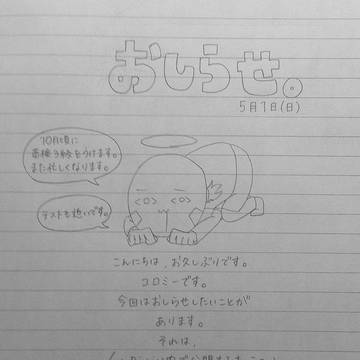 おしらせ。
5月7日(日)
10月頃に
英検3級をうけます。
また忙しくなります。
テストも近いです。
こんにちは、お久しぶりです。
コロミーです。
今回はおしらせしたいことが
あります。
それは、